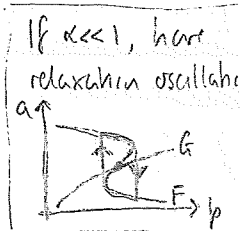 If α<<1, have
relaxation oscillatio
a
G
F
p